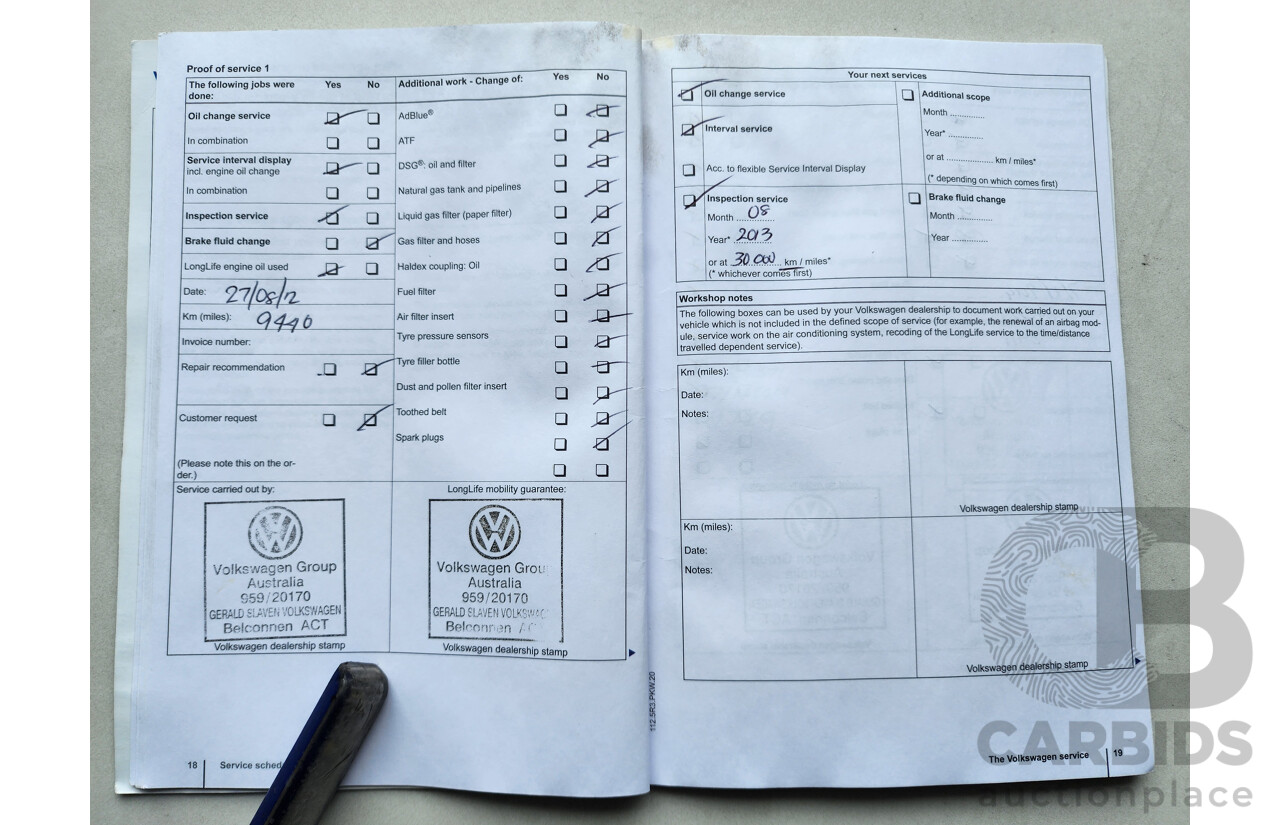 Proof of service 1
The following jobs were done: Yes No
Oil change service
In combination
Service interval display
incl. engine oil change
In combination
Inspection service
Brake fluid change
LongLife engine oil used
Date: 27/08/12
Km (miles): 9440
Invoice number:
Repair recommendation
Customer request
(Please note this on the or-
der.)
Additional work - Change of: Yes No
AdBlue®
ATF
DSG®: oil and filter
Natural gas tank and pipelines
Liquid gas filter (paper filter)
Gas filter and hoses
Haldex coupling: Oil
Fuel filter
Air filter insert
Tyre pressure sensors
Tyre filler bottle
Dust and pollen filter insert
Toothed belt
Spark plugs
Service carried out by:
Volkswagen Group
Australia
959/20170
GERALD SLAVEN VOLKSWAGEN
Belconnen ACT
Volkswagen dealership stamp
LongLife mobility guarantee:
Volkswagen Grou
Australia
959/20170
GERALD SLAVEN VOLKSWAG
Belconnen AC
Volkswagen dealership stamp
18 Service sched
112.5R3.PKW.20
Your next services
Oil change service
Interval service
Acc. to flexible Service Interval Display
Inspection service
Month 08
Year* 2013
or at 30.000 km / miles*
(* whichever comes first)
Additional scope
Month ............
Year* ............
or at .................... km / miles*
(* depending on which comes first)
Brake fluid change
Month ............
Year ............
Workshop notes
The following boxes can be used by your Volkswagen dealership to document work carried out on your
vehicle which is not included in the defined scope of service (for example, the renewal of an airbag mod-
ule, service work on the air conditioning system, recoding of the LongLife service to the time/distance
travelled dependent service).
Km (miles):
Date:
Notes:
Volkswagen dealership stamp
Km (miles):
Date:
Notes:
Volkswagen dealership stamp
The Volkswagen service 19
CARBIDS
auctionplace